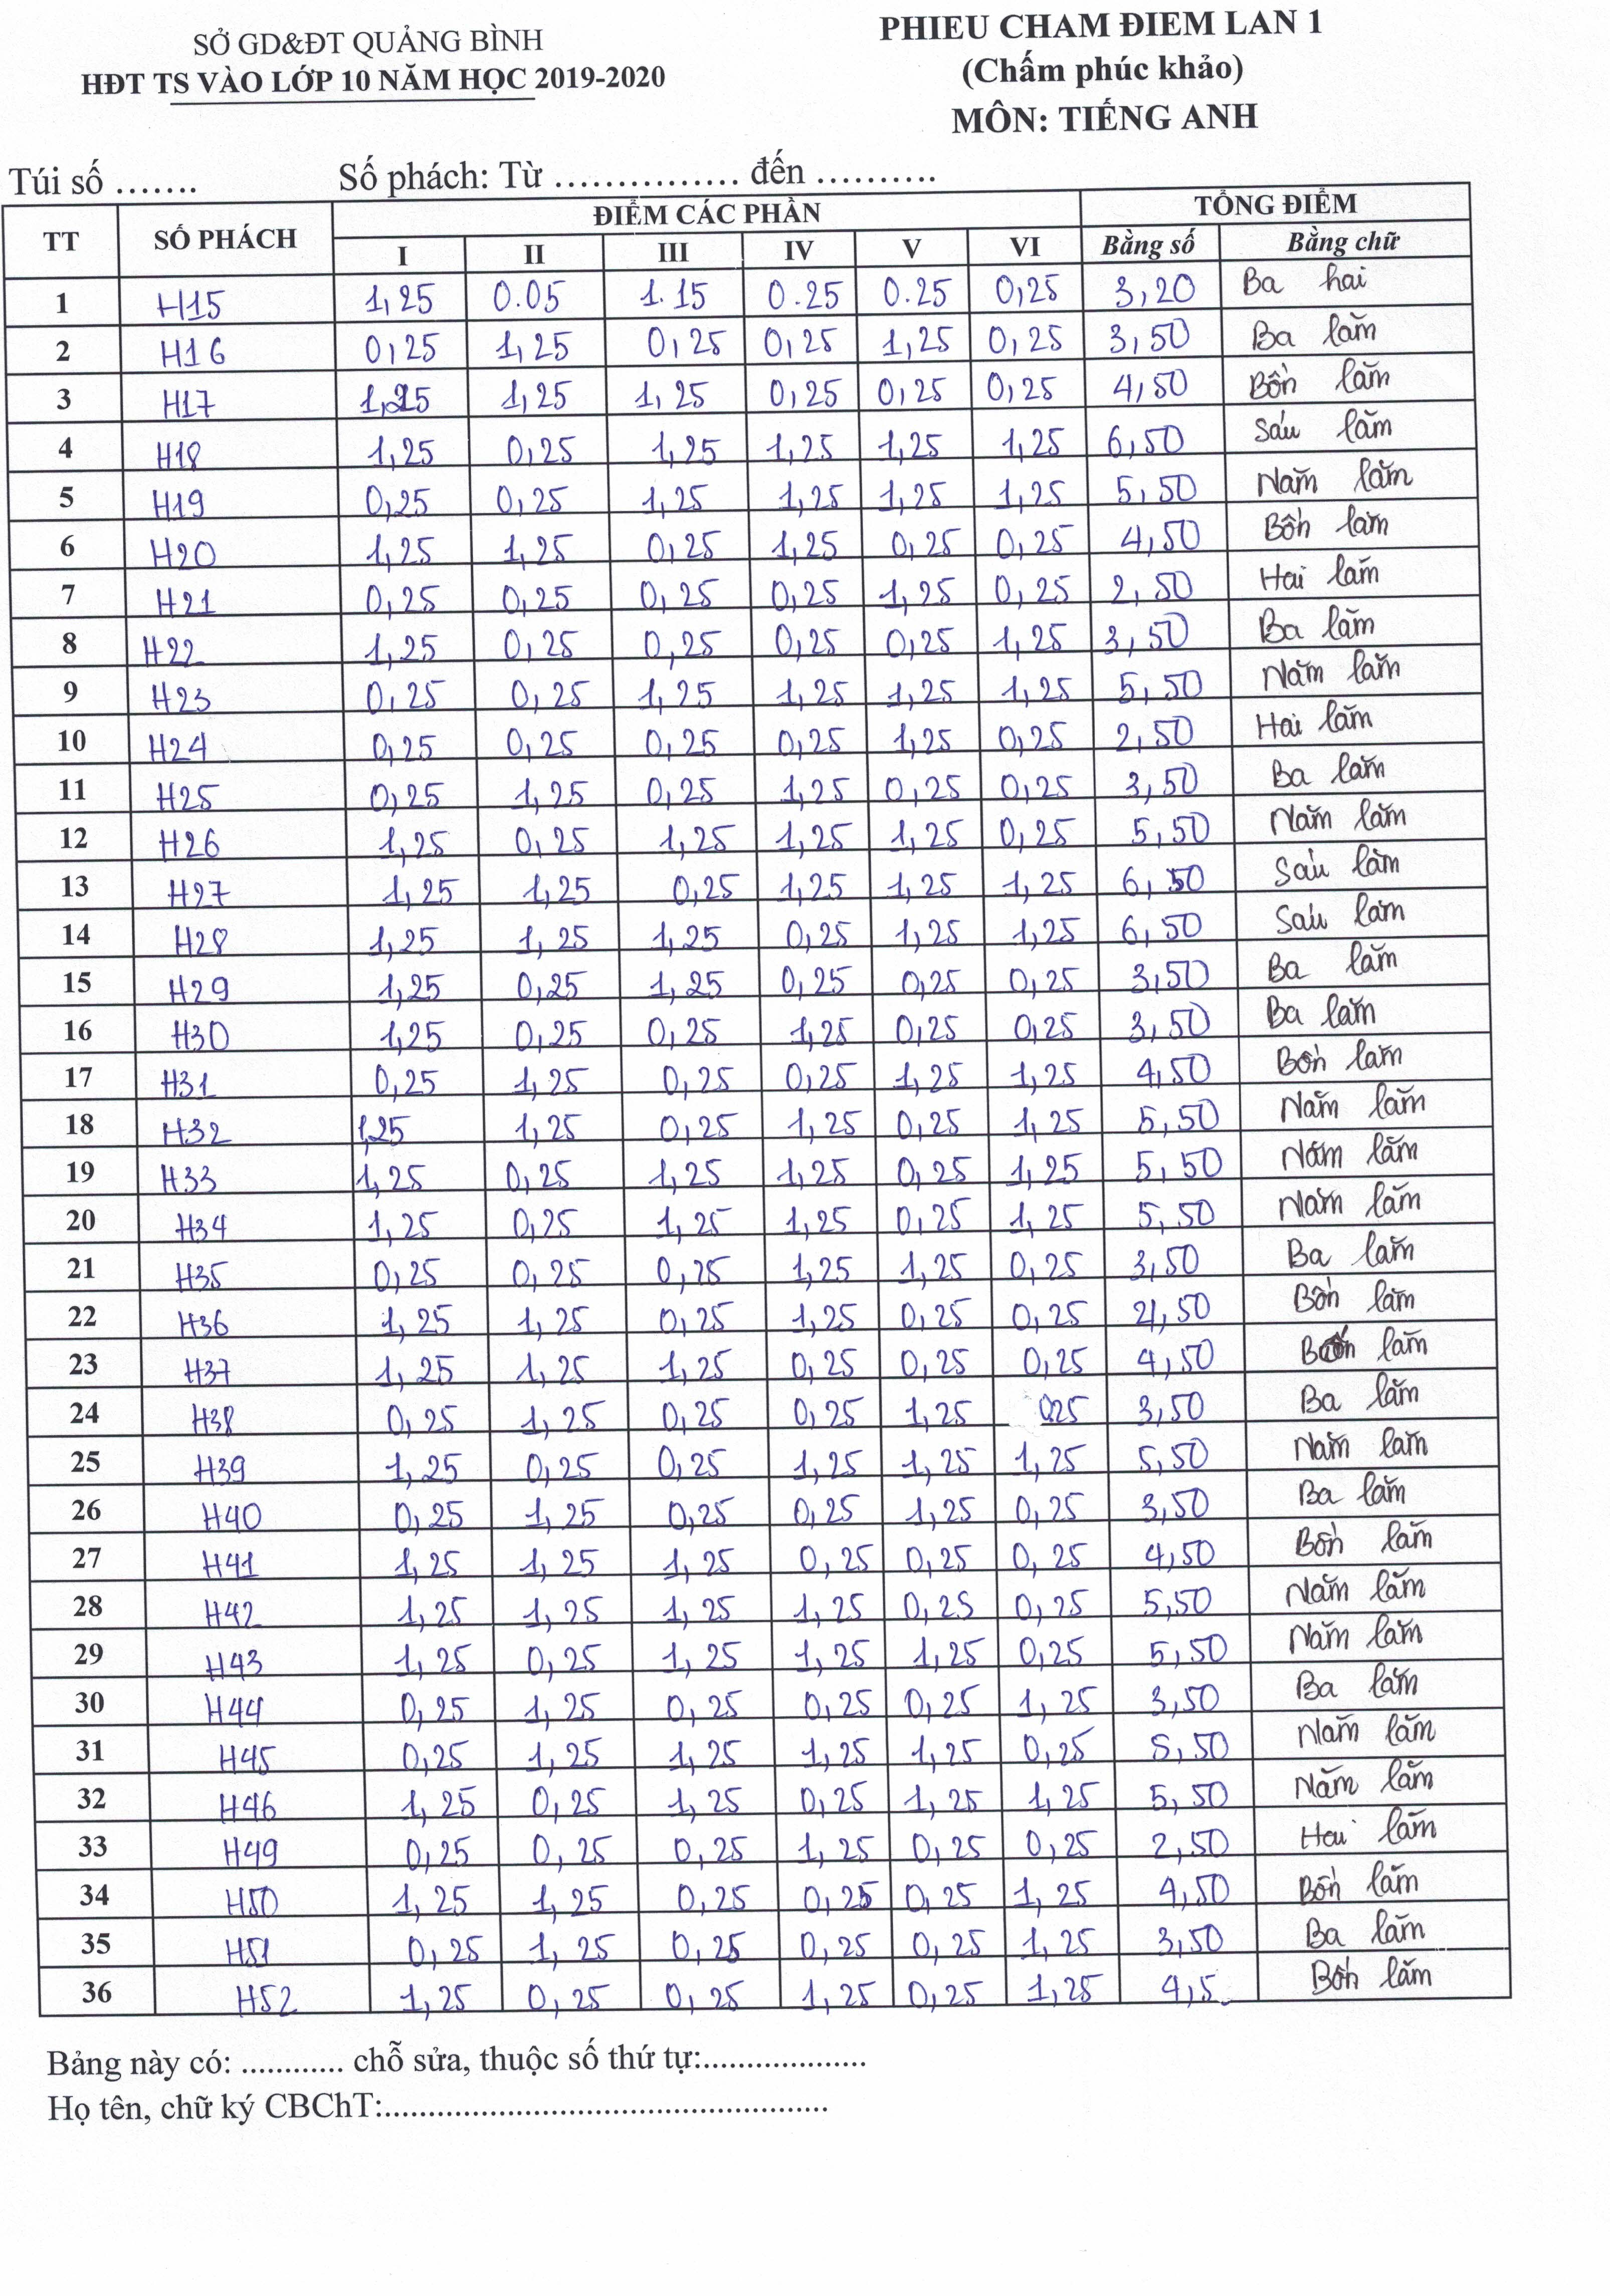 SỞ GD&ĐT QUẢNG BÌNH
HĐT TS VÀO LỚP 10 NĂM HỌC 2019-2020
PHIEU CHAM ĐIEM LAN 1
(Chấm phúc khảo)
MÔN: TIẾNG ANH
Túi số ....... Số phách: Từ ............... đến ..........
TT SỐ PHÁCH ĐIỂM CÁC PHẦN TỔNG ĐIỂM
I II III IV V VI Bằng số Bằng chữ
1 H15 1,25 0.05 1.15 0.25 0.25 0,25 3,20 Ba hai
2 H16 0,25 1,25 0,25 0,25 1,25 0,25 3,50 Ba lăm
3 H17 1,25 1,25 1,25 0,25 0,25 0,25 4,50 Bốn lăm
4 H18 1,25 0,25 1,25 1,25 1,25 1,25 6,50 Sáu lăm
5 H19 0,25 0,25 1,25 1,25 1,25 1,25 5,50 Năm lăm
6 H20 1,25 1,25 0,25 1,25 0,25 0,25 4,50 Bốn lăm
7 H21 0,25 0,25 0,25 0,25 1,25 0,25 2,50 Hai lăm
8 H22 1,25 0,25 0,25 0,25 0,25 1,25 3,50 Ba lăm
9 H23 0,25 0,25 1,25 1,25 1,25 1,25 5,50 Năm lăm
10 H24 0,25 0,25 0,25 0,25 1,25 0,25 2,50 Hai lăm
11 H25 0,25 1,25 0,25 1,25 0,25 0,25 3,50 Ba lăm
12 H26 1,25 0,25 1,25 1,25 1,25 0,25 5,50 Năm lăm
13 H27 1,25 1,25 0,25 1,25 1,25 1,25 6,50 Sáu lăm
14 H28 1,25 1,25 1,25 0,25 1,25 1,25 6,50 Sáu lăm
15 H29 1,25 0,25 1,25 0,25 0,25 0,25 3,50 Ba lăm
16 H30 1,25 0,25 0,25 1,25 0,25 0,25 3,50 Ba lăm
17 H31 0,25 1,25 0,25 0,25 1,25 1,25 4,50 Bốn lăm
18 H32 1,25 1,25 0,25 1,25 0,25 1,25 5,50 Năm lăm
19 H33 1,25 0,25 1,25 1,25 0,25 1,25 5,50 Năm lăm
20 H34 1,25 0,25 1,25 1,25 0,25 1,25 5,50 Năm lăm
21 H35 0,25 0,25 0,25 1,25 1,25 0,25 3,50 Ba lăm
22 H36 1,25 1,25 0,25 1,25 0,25 0,25 4,50 Bốn lăm
23 H37 1,25 1,25 1,25 0,25 0,25 0,25 4,50 Bốn lăm
24 H38 0,25 1,25 0,25 0,25 1,25 0,25 3,50 Ba lăm
25 H39 1,25 0,25 0,25 1,25 1,25 1,25 5,50 Năm lăm
26 H40 0,25 1,25 0,25 0,25 1,25 0,25 3,50 Ba lăm
27 H41 1,25 1,25 1,25 0,25 0,25 0,25 4,50 Bốn lăm
28 H42 1,25 1,25 1,25 1,25 0,25 0,25 5,50 Năm lăm
29 H43 1,25 0,25 1,25 1,25 1,25 0,25 5,50 Năm lăm
30 H44 0,25 1,25 0,25 0,25 0,25 1,25 3,50 Ba lăm
31 H45 0,25 1,25 1,25 1,25 1,25 0,25 5,50 Năm lăm
32 H46 1,25 0,25 1,25 0,25 1,25 1,25 5,50 Năm lăm
33 H49 0,25 0,25 0,25 1,25 0,25 0,25 2,50 Hai lăm
34 H50 1,25 1,25 0,25 0,25 0,25 1,25 4,50 Bốn lăm
35 H51 0,25 1,25 0,25 0,25 0,25 1,25 3,50 Ba lăm
36 H52 1,25 0,25 0,25 1,25 0,25 1,25 4,5 Bốn lăm
Bảng này có: ............ chỗ sửa, thuộc số thứ tự:...................
Họ tên, chữ ký CBChT:..................................................